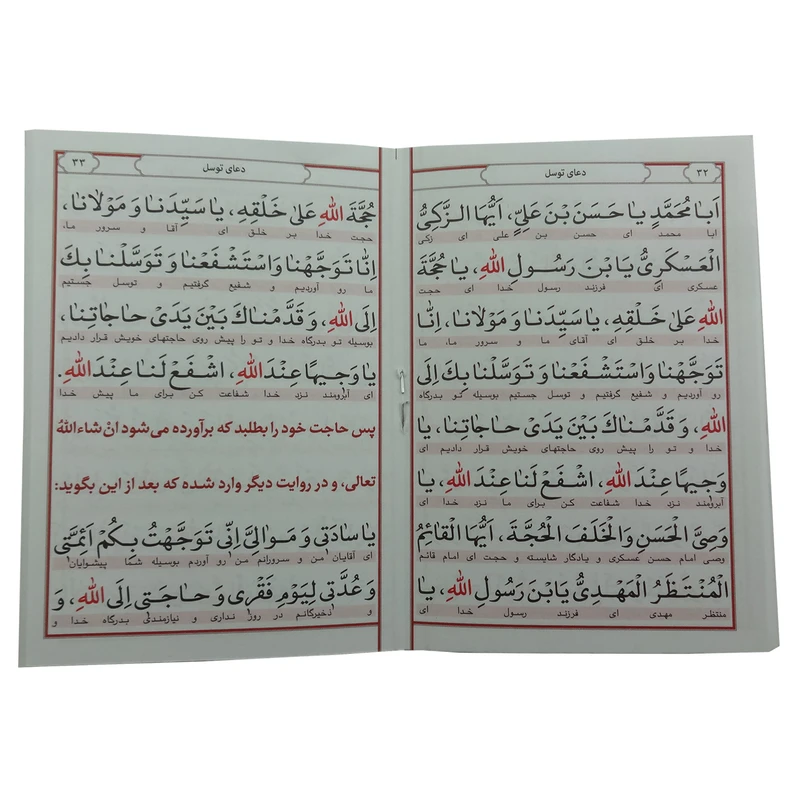 ۳۲
دعای توسل
اَبا مُحَمَّدٍ يا حَسَنَ بْنَ عَلِيٍّ، اَيُّهَا الزَّكِىُّ
ابا محمد ای حسن بن علی ای زکی
الْعَسْكَرِىُّ يَا بْنَ رَسُولِ اللهِ، يا حُجَّةَ
عسکری ای فرزند رسول خدا ای حجت
اللهِ عَلىٰ خَلْقِهِ، يا سَيِّدَنا وَ مَوْلانا، اِنّا
خدا بر خلق ای آقای ما و سرور ما، ما
تَوَجَّهْنا وَاسْتَشْفَعْنا وَ تَوَسَّلْنا بِكَ اِلَى
رو آوردیم و شفیع گرفتیم و توسل جستیم بوسیله تو بدرگاه
اللهِ، وَ قَدَّمْناكَ بَيْنَ يَدَىْ حاجاتِنا، يا
خدا و تو را پیش روی حاجتهای خویش قرار دادیم ای
وَجيهًا عِنْدَ اللهِ، اشْفَعْ لَنا عِنْدَ اللهِ، يا
آبرومند نزد خدا شفاعت کن برای ما نزد خدا ای
وَصِىَّ الْحَسَنِ وَالْخَلَفَ الْحُجَّةَ، اَيُّهَا الْقائِمُ
وصی امام حسن عسکری و یادگار شایسته و حجت ای امام قائم
الْمُنْتَظَرُ الْمَهْدِىُّ يَا بْنَ رَسُولِ اللهِ، يا
منتظر مهدی ای فرزند رسول خدا ای
۳۳
دعای توسل
حُجَّةَ اللهِ عَلىٰ خَلْقِهِ، يا سَيِّدَنا وَ مَوْلانا،
حجت خدا بر خلق ای آقا و سرور ما،
اِنّا تَوَجَّهْنا وَاسْتَشْفَعْنا وَ تَوَسَّلْنا بِكَ
ما رو آوردیم و شفیع گرفتیم و توسل جستیم
اِلَى اللهِ، وَ قَدَّمْناكَ بَيْنَ يَدَىْ حاجاتِنا،
بوسیله تو بدرگاه خدا و تو را پیش روی حاجتهای خویش قرار دادیم
يا وَجيهًا عِنْدَ اللهِ، اشْفَعْ لَنا عِنْدَ اللهِ.
ای آبرومند نزد خدا شفاعت کن برای ما پیش خدا
پس حاجت خود را بطلبد که برآورده می‌شود انْ شاءَ اللهُ
تعالی، و در روایت دیگر وارد شده که بعد از این بگوید:
يا سادَتى وَ مَوالِىَّ اِنّى تَوَجَّهْتُ بِكُمْ اَئِمَّتى
ای آقایان من و سرورانم من رو آوردم بوسیله شما پیشوایان
وَ عُدَّتى لِيَوْمِ فَقْرى وَ حاجَتى اِلَى اللهِ، وَ
و ذخیرگانم در روز نداری و نیازمندی بدرگاه خدا و